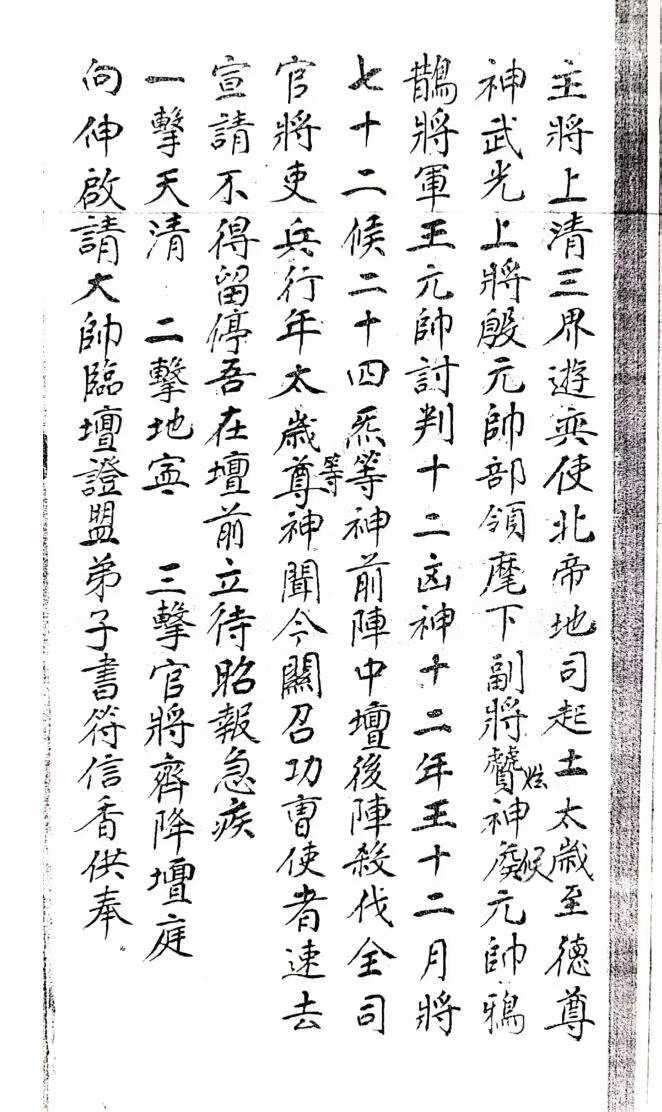 主將上清三界遊奕使北帝地司起土太歲至德尊
神武光上將殷元帥部領麾下副將鷩神矦元帥鴉
鵲將軍王元帥討判十二凶神十二年王十二月將
七十二候二十四炁等神前陣中壇後陣殺伐全司
官將吏兵行年太歲尊等神聞今關召功曹使者速去
宣請不得留停吾在壇前立待昭報急疾
一擊天清 二擊地寧 三擊官將齊降壇庭
向伸啟請大帥臨壇證盟弟子書符信香供奉